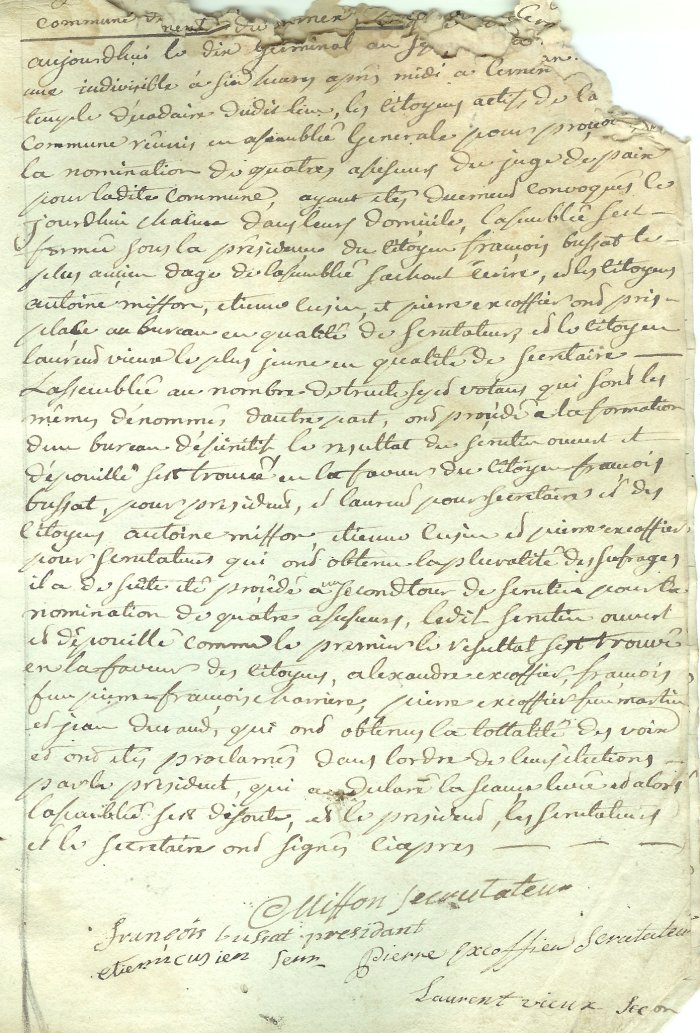 commune de
aujourdhuî le dix Germinal an
une indivisible à six heures après midi a
temple décadaire dudit lieu, les citoyens actifs de la
commune réunis en assemblée Generale pour
la nomination de quatres asseseurs du juge de paix
pour ladite commune, ayant etés duemend convoqués le
jourdhui dans leurs domicile, lasemblée sest
formée sous la présidence du citoyen françois bussat le
plus ancien dage de lasemblé sachant écrire, et les citoyens
antoine miffon, etienne cusin, et pierre excoffier ond pris
place au bureau en qualité de scrutateurs ed le citoyen
laurend vieux le plus jeune en qualité de secretaire —
Lassemblée au nombre de trente sept votans qui sond les
mêmes dénommés dautre part, ond procédé a la formation
dun bureau déffinitif le resultat du scrutin ouvert et
dépouillé sest trouvé en la faveur du citoyen françois
bussat, pour président, et laurend pour secretaire et des
citoyens antoine miffon, etienne cusin ed pierre excoffier
pour scrutateurs qui ond obtenu la pluralité des sufrages
il a de suite eté procédé a un second tour de scrutin pour la
nomination de quatre asseseurs, ledit scrutin ouvert
et dépouillé comme le premier le resultat sest trouvé
en la faveur des citoyens, alexandre excoffier, françois
feu pierre françois charriere, pierre excoffier feu martin
ed jean durand, qui ond obtenus la tottalité des voix
ed ond etés proclamés dans lordre de leurs elections —
par le président, qui a déclaré la seance levée ed alors
lasemblée sest disoute, et le présidend, les scrutateurs
et le secretaire ond signés ciapres — — — —
Miffon secrutateur
françois bussat presidant
etienne cusien Pierre Excoffieu Scrutateu
Laurent vieux